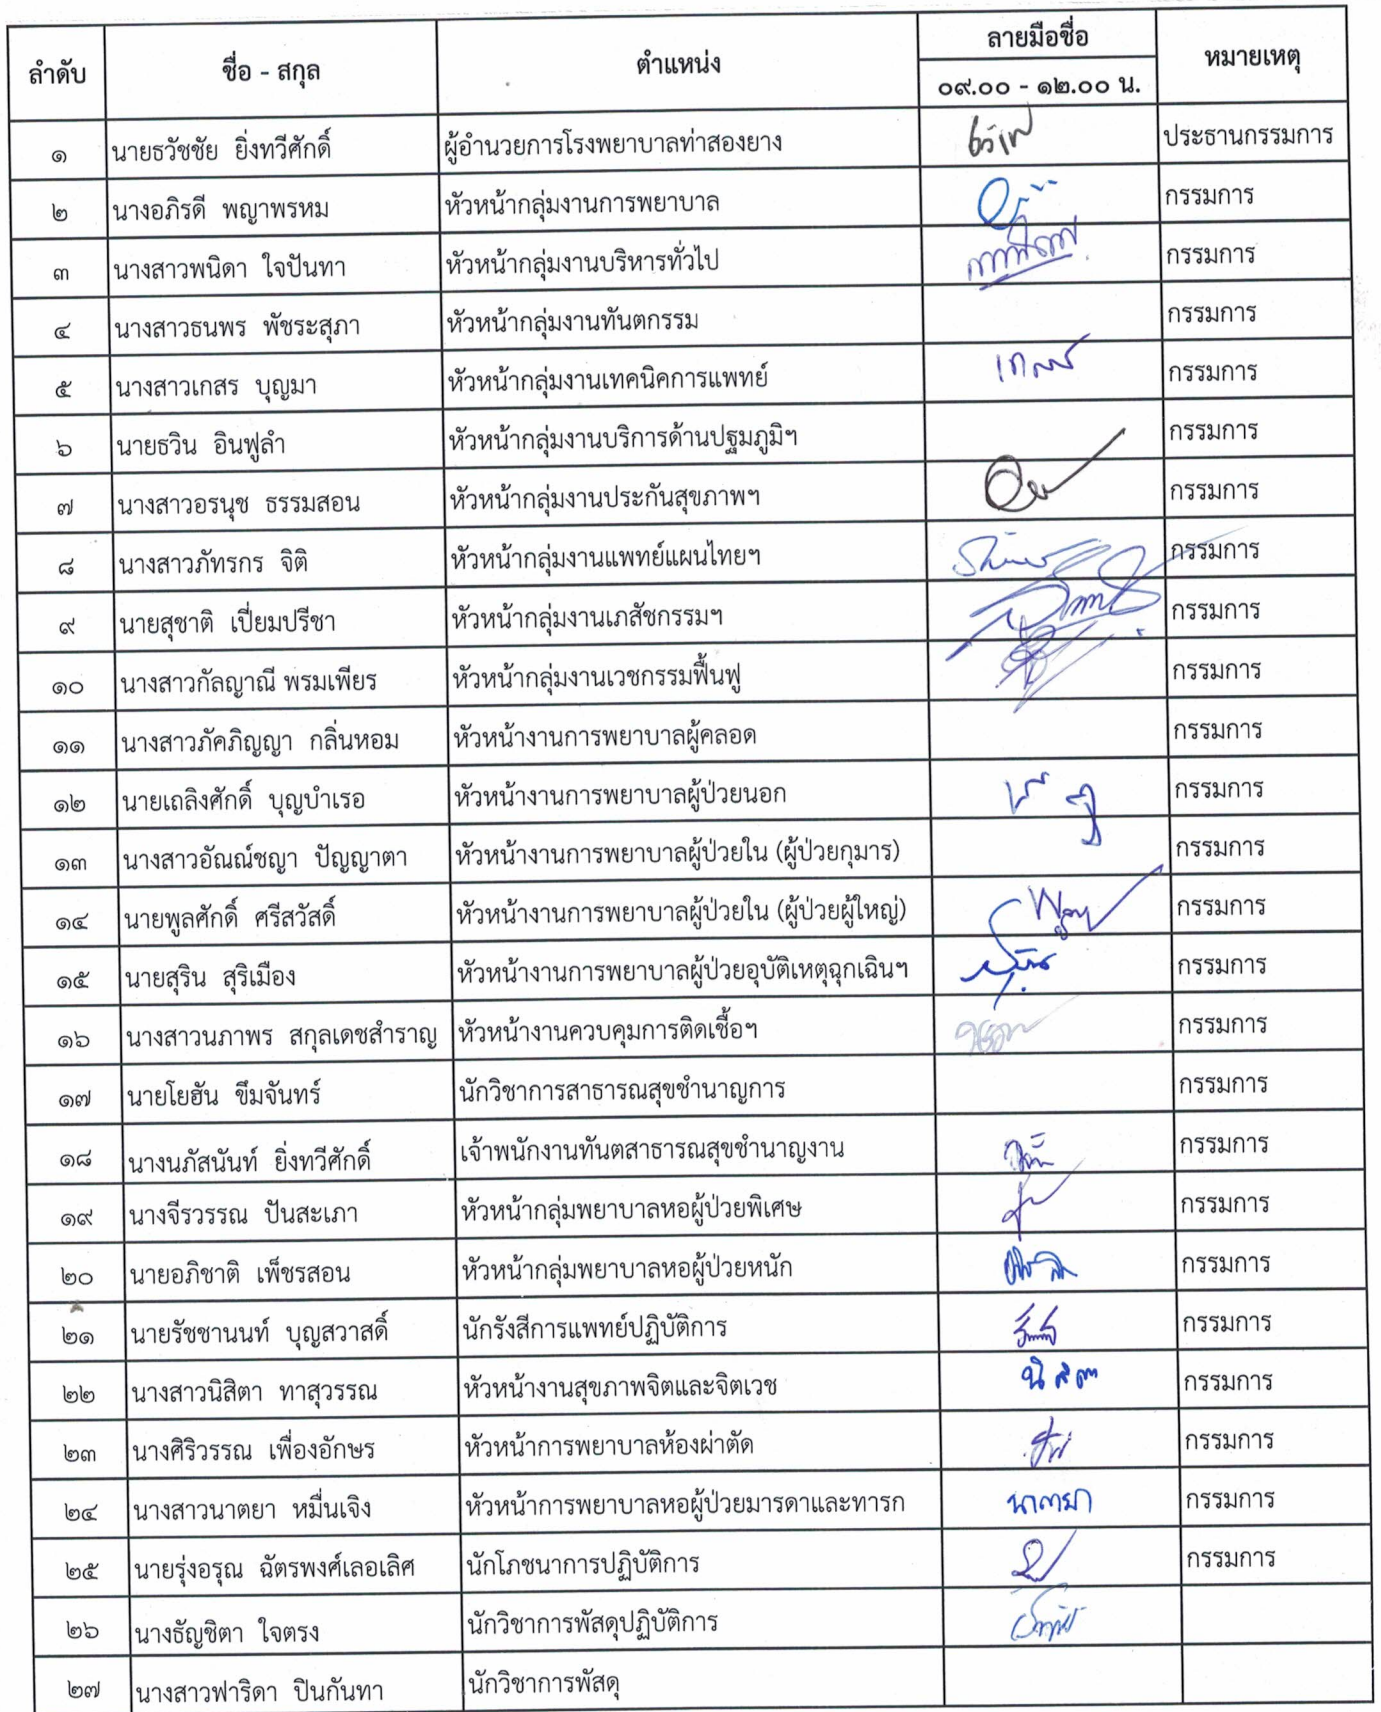 ลำดับ ชื่อ - สกุล ตำแหน่ง ลายมือชื่อ หมายเหตุ
๐๙.๐๐ - ๑๒.๐๐ น.
๑ นายธวัชชัย ยิ่งทวีศักดิ์ ผู้อำนวยการโรงพยาบาลท่าสองยาง ประธานกรรมการ
๒ นางอภิรดี พญาพรหม หัวหน้ากลุ่มงานการพยาบาล กรรมการ
๓ นางสาวพนิดา ใจปันทา หัวหน้ากลุ่มงานบริหารทั่วไป กรรมการ
๔ นางสาวธนพร พัชระสุภา หัวหน้ากลุ่มงานทันตกรรม กรรมการ
๕ นางสาวเกสร บุญมา หัวหน้ากลุ่มงานเทคนิคการแพทย์ เกสร กรรมการ
๖ นายธวิน อินฟูลำ หัวหน้ากลุ่มงานบริการด้านปฐมภูมิฯ กรรมการ
๗ นางสาวอรนุช ธรรมสอน หัวหน้ากลุ่มงานประกันสุขภาพฯ กรรมการ
๘ นางสาวภัทรกร จิติ หัวหน้ากลุ่มงานแพทย์แผนไทยฯ กรรมการ
๙ นายสุชาติ เปี่ยมปรีชา หัวหน้ากลุ่มงานเภสัชกรรมฯ กรรมการ
๑๐ นางสาวกัลญาณี พรมเพียร หัวหน้ากลุ่มงานเวชกรรมฟื้นฟู กรรมการ
๑๑ นางสาวภัคภิญญา กลิ่นหอม หัวหน้างานการพยาบาลผู้คลอด กรรมการ
๑๒ นายเถลิงศักดิ์ บุญบำเรอ หัวหน้างานการพยาบาลผู้ป่วยนอก กรรมการ
๑๓ นางสาวอัณณ์ชญา ปัญญาตา หัวหน้างานการพยาบาลผู้ป่วยใน (ผู้ป่วยกุมาร) กรรมการ
๑๔ นายพูลศักดิ์ ศรีสวัสดิ์ หัวหน้างานการพยาบาลผู้ป่วยใน (ผู้ป่วยผู้ใหญ่) กรรมการ
๑๕ นายสุริน สุริเมือง หัวหน้างานการพยาบาลผู้ป่วยอุบัติเหตุฉุกเฉินฯ กรรมการ
๑๖ นางสาวนภาพร สกุลเดชสำราญ หัวหน้างานควบคุมการติดเชื้อฯ กรรมการ
๑๗ นายโยฮัน ขึมจันทร์ นักวิชาการสาธารณสุขชำนาญการ กรรมการ
๑๘ นางนภัสนันท์ ยิ่งทวีศักดิ์ เจ้าพนักงานทันตสาธารณสุขชำนาญงาน กรรมการ
๑๙ นางจีรวรรณ ปันสะเภา หัวหน้ากลุ่มพยาบาลหอผู้ป่วยพิเศษ กรรมการ
๒๐ นายอภิชาติ เพ็ชรสอน หัวหน้ากลุ่มพยาบาลหอผู้ป่วยหนัก กรรมการ
๒๑ นายรัชชานนท์ บุญสวาสดิ์ นักรังสีการแพทย์ปฏิบัติการ กรรมการ
๒๒ นางสาวนิสิตา ทาสุวรรณ หัวหน้างานสุขภาพจิตและจิตเวช นิสิตา กรรมการ
๒๓ นางศิริวรรณ เพื่องอักษร หัวหน้าการพยาบาลห้องผ่าตัด กรรมการ
๒๔ นางสาวนาตยา หมื่นเจิง หัวหน้าการพยาบาลหอผู้ป่วยมารดาและทารก นาตยา กรรมการ
๒๕ นายรุ่งอรุณ ฉัตรพงศ์เลอเลิศ นักโภชนาการปฏิบัติการ กรรมการ
๒๖ นางธัญชิตา ใจตรง นักวิชาการพัสดุปฏิบัติการ
๒๗ นางสาวฟาริดา ปินกันทา นักวิชาการพัสดุ